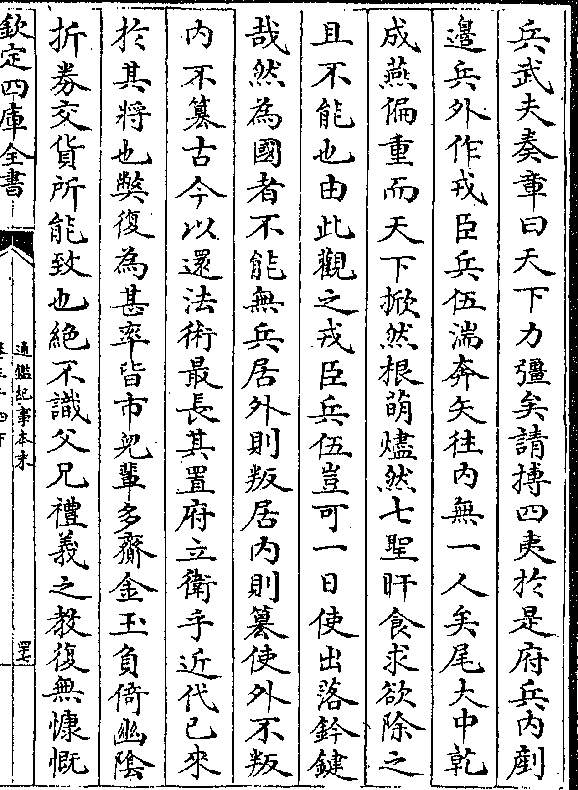 兵武夫奏章曰天下力彊矣請搏四夷於是府兵内剷
邊兵外作戎臣兵伍湍奔矢往内無一人矣尾大中乾
成燕偏重而天下掀然根萌燼然七聖旰食求欲除之
且不能也由此觀之戎臣兵伍豈可一日使出落鈐鍵
哉然為國者不能無兵居外則叛居内則篡使外不叛
内不篡古今以還法術最長其置府立衛乎近代已來
於其將也弊復為甚率皆市兒輩多齎金玉負倚幽陰
折券交貨所能致也絶不識父兄禮義之教復無慷慨
欽定四庫全書
通鑑紀事本末